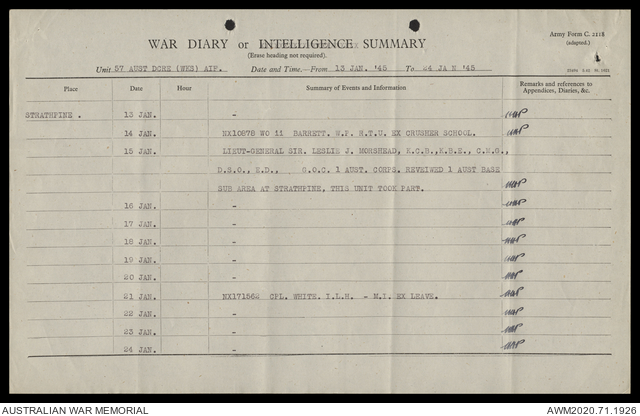 Army Form C. 2118
(adapted.)
WAR DIARY or INTELLIGENCE SUMMARY
(Erase heading not required).
Unit 57 AUST DCRE (WKS) AIF. Date and Time.—From 13 JAN. '45 To 24 JAN '45
Place Date Hour Summary of Events and Information Remarks and references to Appendices, Diaries, &c.
STRATHPINE . 13 JAN. -
14 JAN. NX10878 WO 11 BARRETT. W.P. R.T.U. EX CRUSHER SCHOOL.
15 JAN. LIEUT-GENERAL SIR. LESLIE J. MORSHEAD, K.C.B., K.B.E., C.M.G.,
D.S.O., E.D., G.O.C. 1 AUST. CORPS. REVEIWED 1 AUST BASE
SUB AREA AT STRATHPINE, THIS UNIT TOOK PART.
16 JAN. -
17 JAN. -
18 JAN. -
19 JAN. -
20 JAN. -
21 JAN. NX171562 CPL. WHITE. I.L.H. - M.I. EX LEAVE.
22 JAN. -
23 JAN. -
24 JAN. -
AUSTRALIAN WAR MEMORIAL AWM2020.71.1926